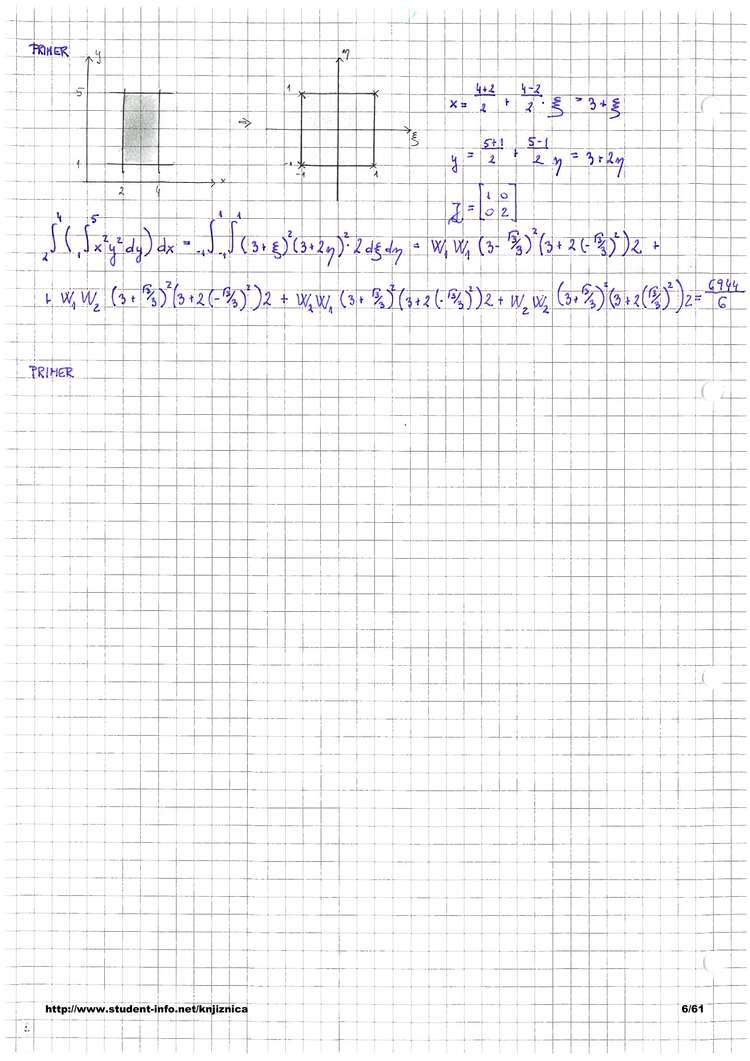 PRIMER
y
5
1
2 4 x
⇒
η
1
-1
-1 1
ξ
x = (4+2)/2 + (4-2)/2 · ξ = 3+ξ
y = (5+1)/2 + (5-1)/2 η = 3+2η
J = [1 0
0 2]
₂∫⁴ ( ₁∫⁵ x²y² dy ) dx = ₋₁∫¹ ₋₁∫¹ (3+ξ)² (3+2η)² · 2 dξ dη = W₁ W₁ (3-√3/3)² (3+2(-√3/3)²) 2 +
+ W₁ W₂ (3+√3/3)² (3+2(-√3/3)²) 2 + W₂ W₁ (3+√3/3)² (3+2(-√3/3)²) 2 + W₂ W₂ (3+√3/3)² (3+2(√3/3)²) 2 = 6944/6
PRIMER
http://www.student-info.net/knjiznica 6/61